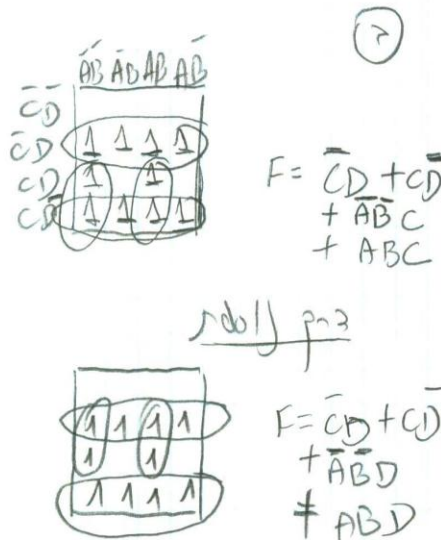 ?
A̅B̅ A̅B AB AB̅
C̅D̅
C̅D 1 1 1 1
CD 1 1
CD̅ 1 1 1 1
F = C̅D + CD̅
+ A̅B̅C
+ ABC
1 1 1 1
1 1
1 1 1 1
F = C̅D + CD̅
+ A̅B̅D
+ ABD